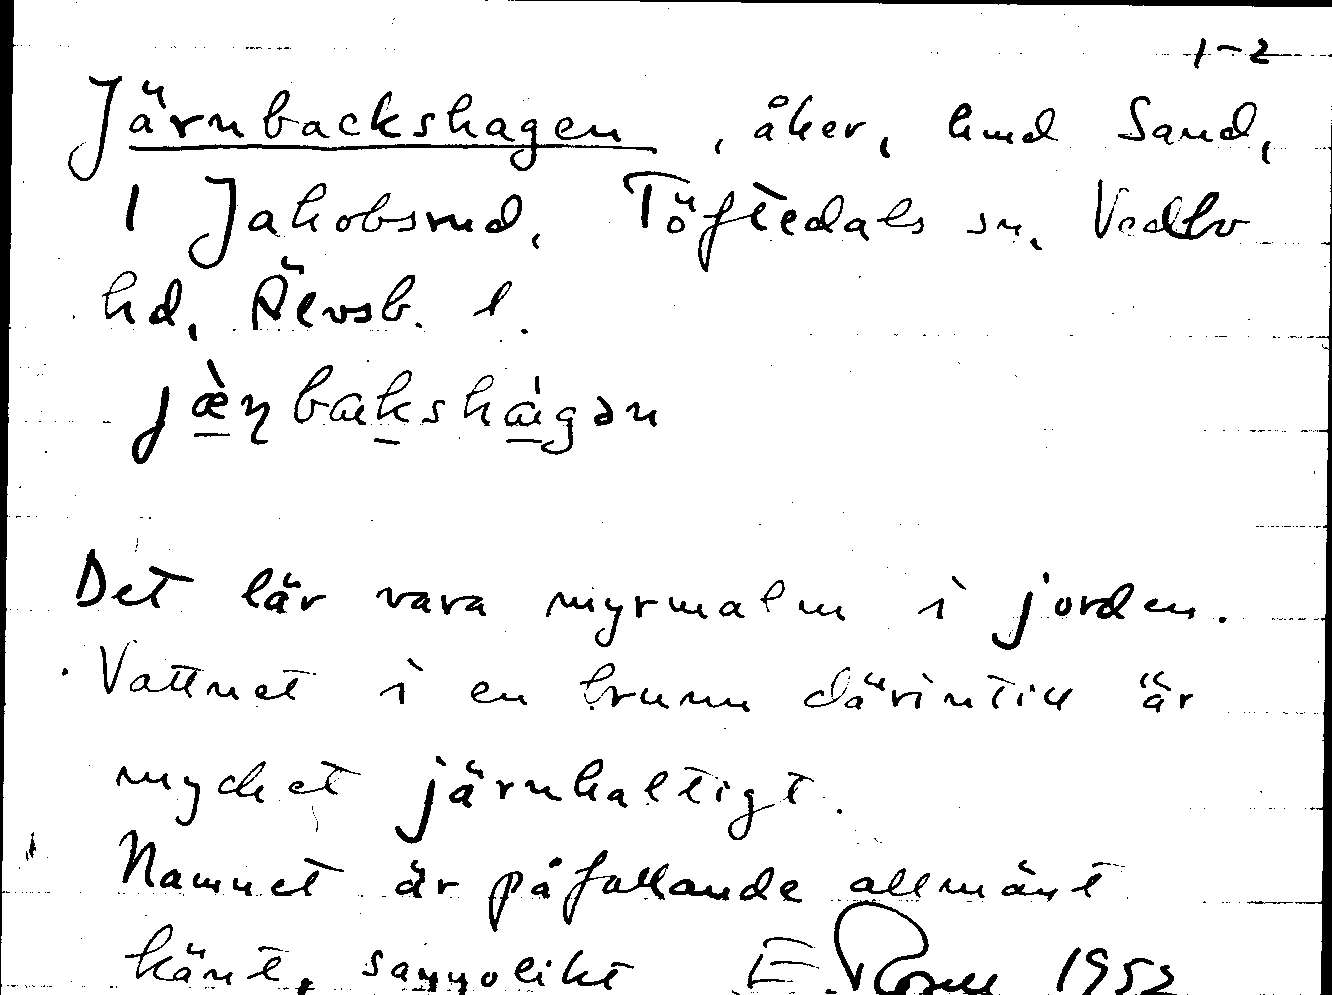 1-2
Järnbackshagen, åker, hmd Sand,
1 Jakobsrud, Töftedals sn, Vedbo
hd, Älvsb. l.
jæ̀ɳbakshágən
Det lär vara myrmalm i jorden.
Vattnet i en brunn därintill är
mycket järnhaltigt.
Namnet är påfallande allmänt
känt, sannolikt E. 1952